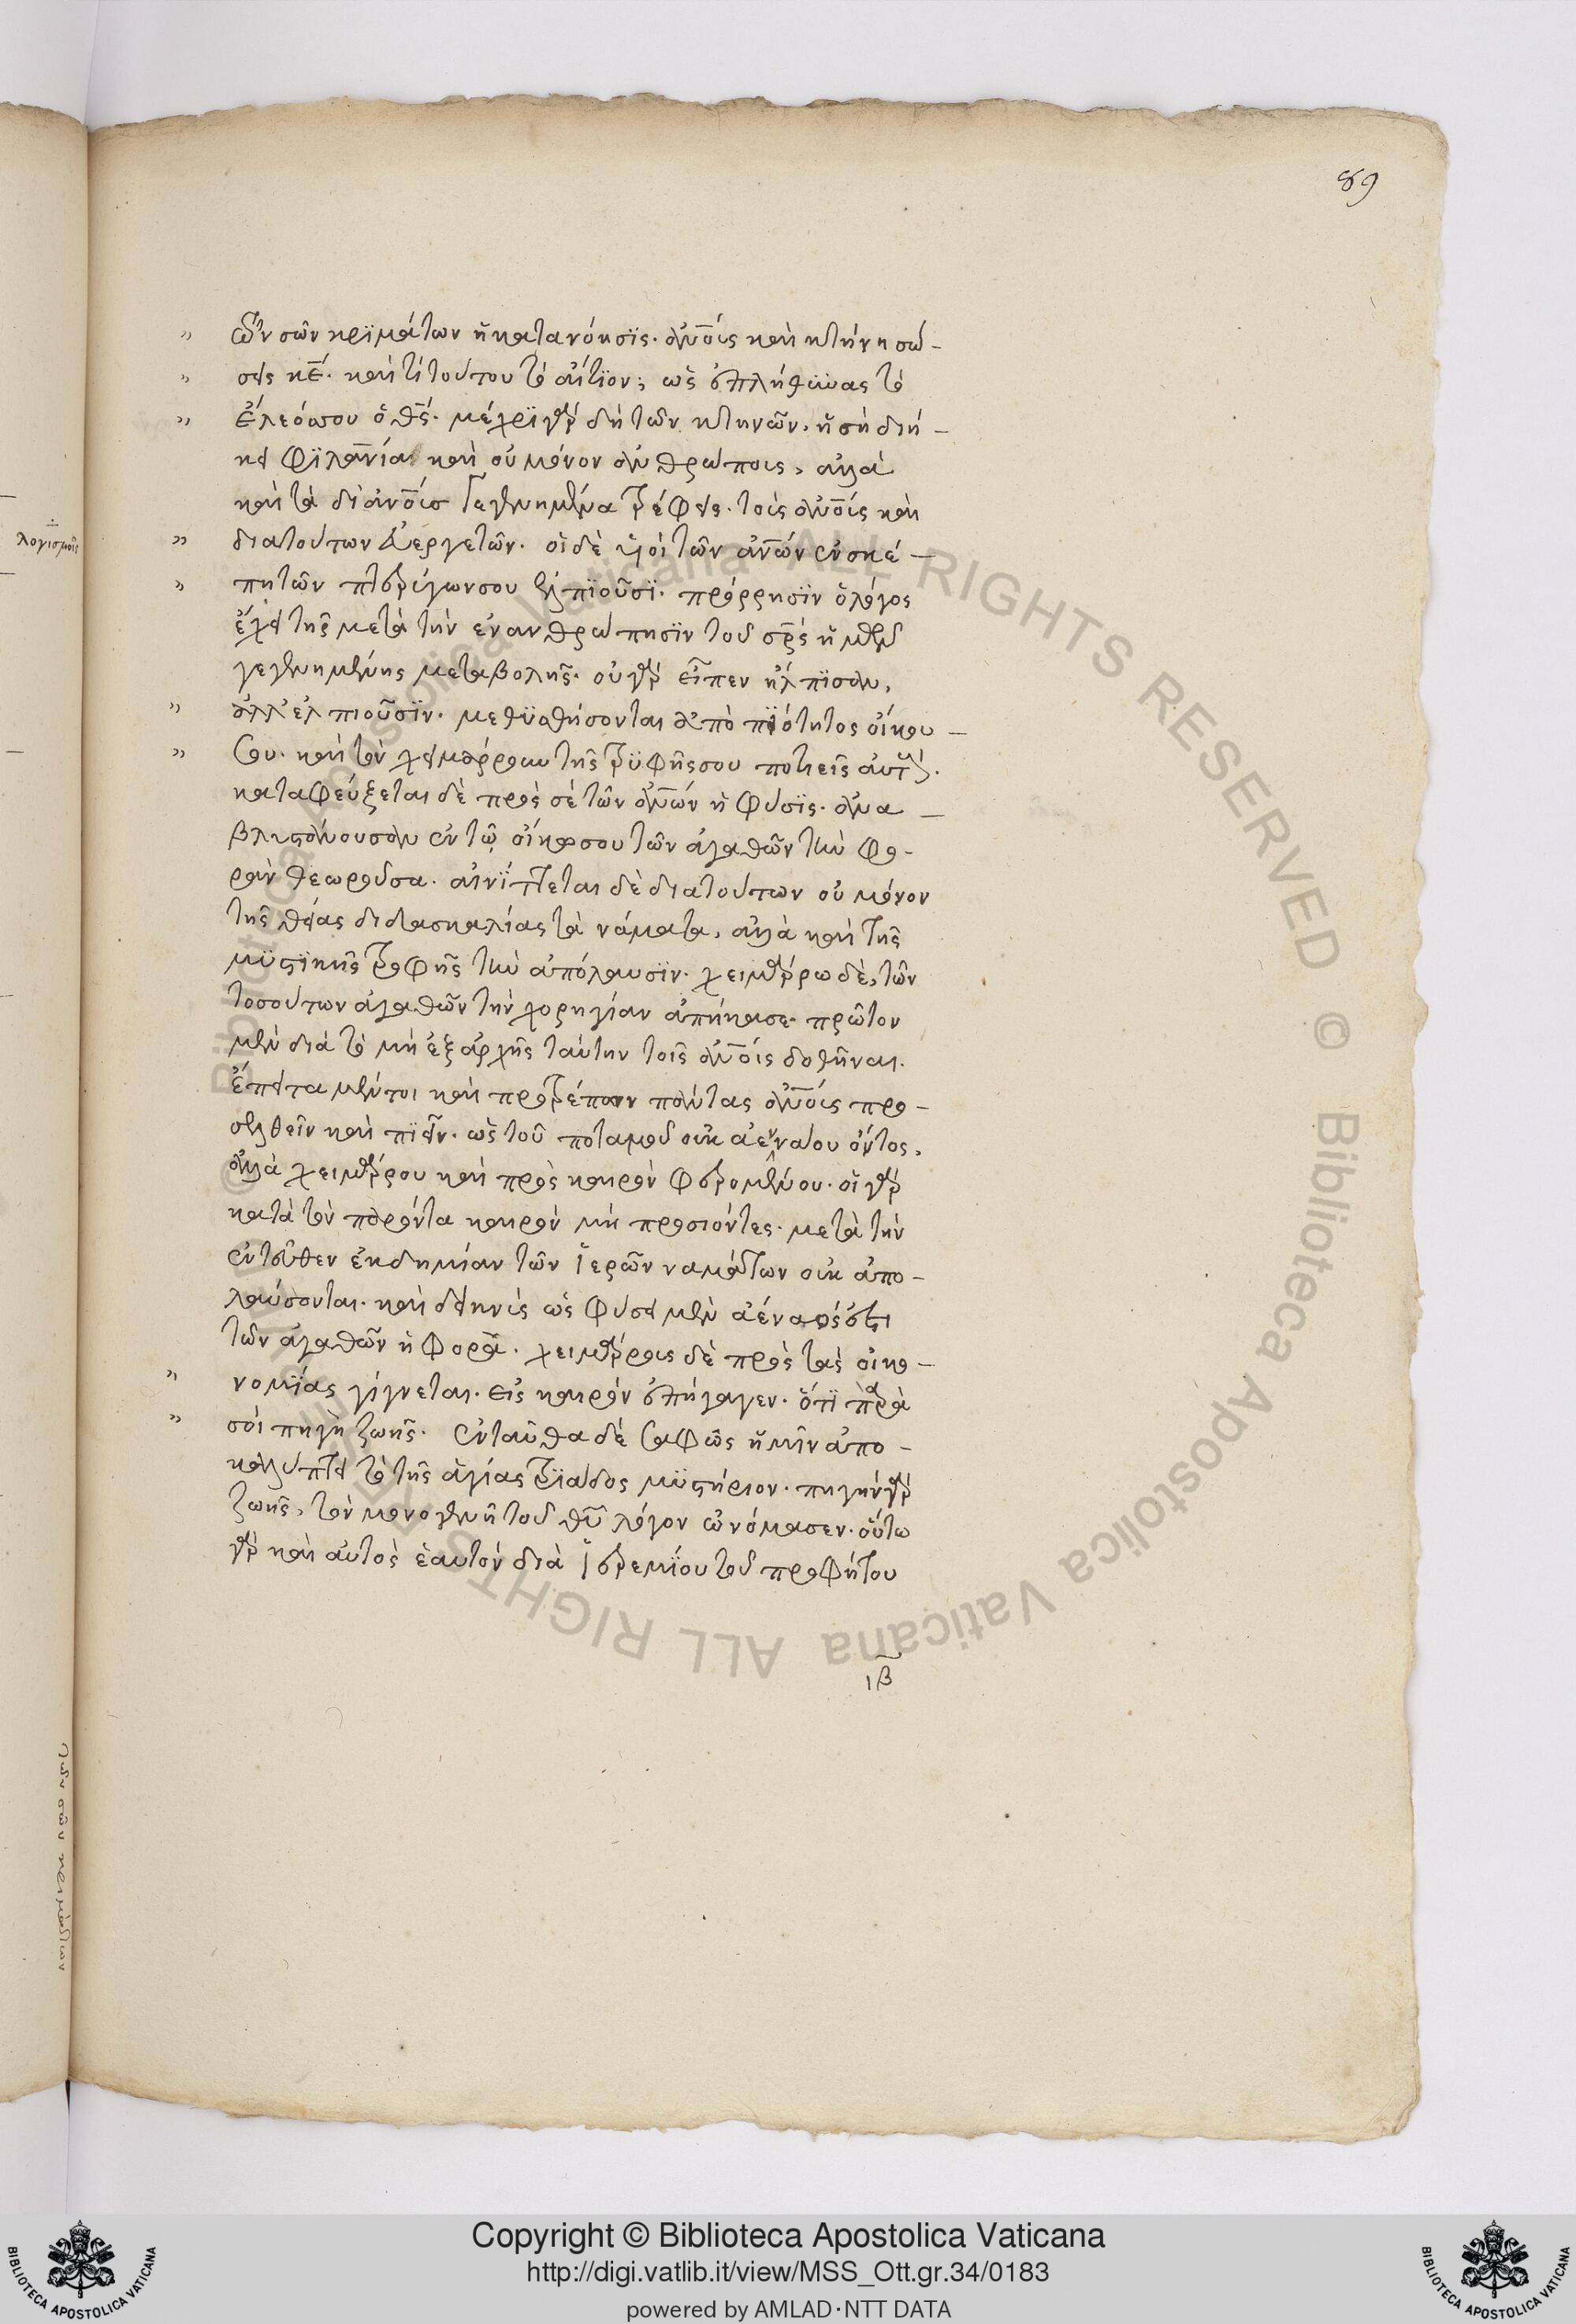 89
τῶν σῶν κριμάτων ἡ κατανόησις. ἀν̅ο̅ις καὶ κτήνη σώ-
σεις κ̅ε̅. καὶ τί τούτου τὸ αἴτιον; ὡς ἐπλήθυνας τὸ
ἔλεός σου ὁ θ̅ς̅. μέχρι γὰρ δὴ τῶν κτηνῶν. ἡ σὴ διή-
κει φιλαν̅ία καὶ οὐ μόνον ἀνθρώποις, ἀλλὰ
καὶ τὰ δι' ἀν̅ο̅ις γεγενημένα τρέφεις. τοὺς ἀν̅ο̅ις καὶ
διατούτων εὐεργετῶν. οἱ δὲ υἱοὶ τῶν ἀν̅ω̅ν ἐν σκέ-
πη τῶν πτερύγων σου ἐλπιοῦσι. πρόρρησιν ὁ λόγος
ἔχει τῆς μετὰ τὴν ἐνανθρώπησιν τοῦ σ̅ρ̅ς ἡμῶν
γεγενημένης μεταβολῆς. οὐ γὰρ εἶπεν ἤλπισαν,
ἀλλ' ἐλπιοῦσιν. μεθυσθήσονται ἀπὸ πιότητος οἴκου
σου. καὶ τὸν χειμάρρουν τῆς τρυφῆς σου ποτιεῖς αὐτούς.
καταφεύξεται δὲ πρὸς σὲ τῶν ἀν̅ω̅ν ἡ φύσις. ἀνα-
βλυστάνουσαν ἐν τῷ οἴκῳ σου τῶν ἀγαθῶν τὴν φο-
ρὰν θεωροῦσα. αἰνίττεται δὲ διατούτων οὐ μόνον
τῆς θείας διδασκαλίας τὰ νάματα, ἀλλὰ καὶ τῆς
μυστικῆς τροφῆς τὴν ἀπόλαυσιν. χειμάρρω δὲ, τῶν
τοσούτων ἀγαθῶν τὴν χορηγίαν ἀπήκασε. πρῶτον
μὲν διὰ τὸ μὴ ἐξαρχῆς ταύτην τοῖς ἀν̅ο̅ις δοθῆναι.
ἔπειτα μέντοι καὶ προτρέπων πάντας ἀν̅ο̅ις προ-
σελθεῖν καὶ πιεῖν. ὡς τοῦ ποταμοῦ οὐκ ἀεννάου ὄντος,
ἀλλὰ χειμάρρου καὶ πρὸς καιρὸν φερομένου. οἱ γὰρ
κατὰ τὸν παρόντα καιρὸν μὴ προσιόντες. μετὰ τὴν
ἐντεῦθεν ἐκδημίαν τῶν ἱερῶν ναμάτων οὐκ ἀπο-
λαύσονται. καὶ δεικνὺς ὡς φύσει μὲν ἀέναός ἐστι
τῶν ἀγαθῶν ἡ φορά. χειμάρρους δὲ πρὸς τὰς οἰκο-
νομίας γίγνεται. εἰς καιρὸν ἐπήγαγεν. ὅτι παρὰ
σοὶ πηγὴ ζωῆς. ἐνταῦθα δὲ σαφῶς ἡμῖν ἀπο-
καλύπτει τὸ τῆς ἁγίας τριάδος μυστήριον. πηγὴν γὰρ
ζωῆς, τὸν μονογενῆ τοῦ θ̅υ̅ λόγον ὠνόμασεν. οὕτω
γὰρ καὶ αὐτὸς ἑαυτὸν διὰ ἱερεμίου τοῦ προφήτου
ιβ
λογισμοῖς
τῶν σῶν κριμάτων
Copyright © Biblioteca Apostolica Vaticana
http://digi.vatlib.it/view/MSS_Ott.gr.34/0183
powered by AMLAD·NTT DATA